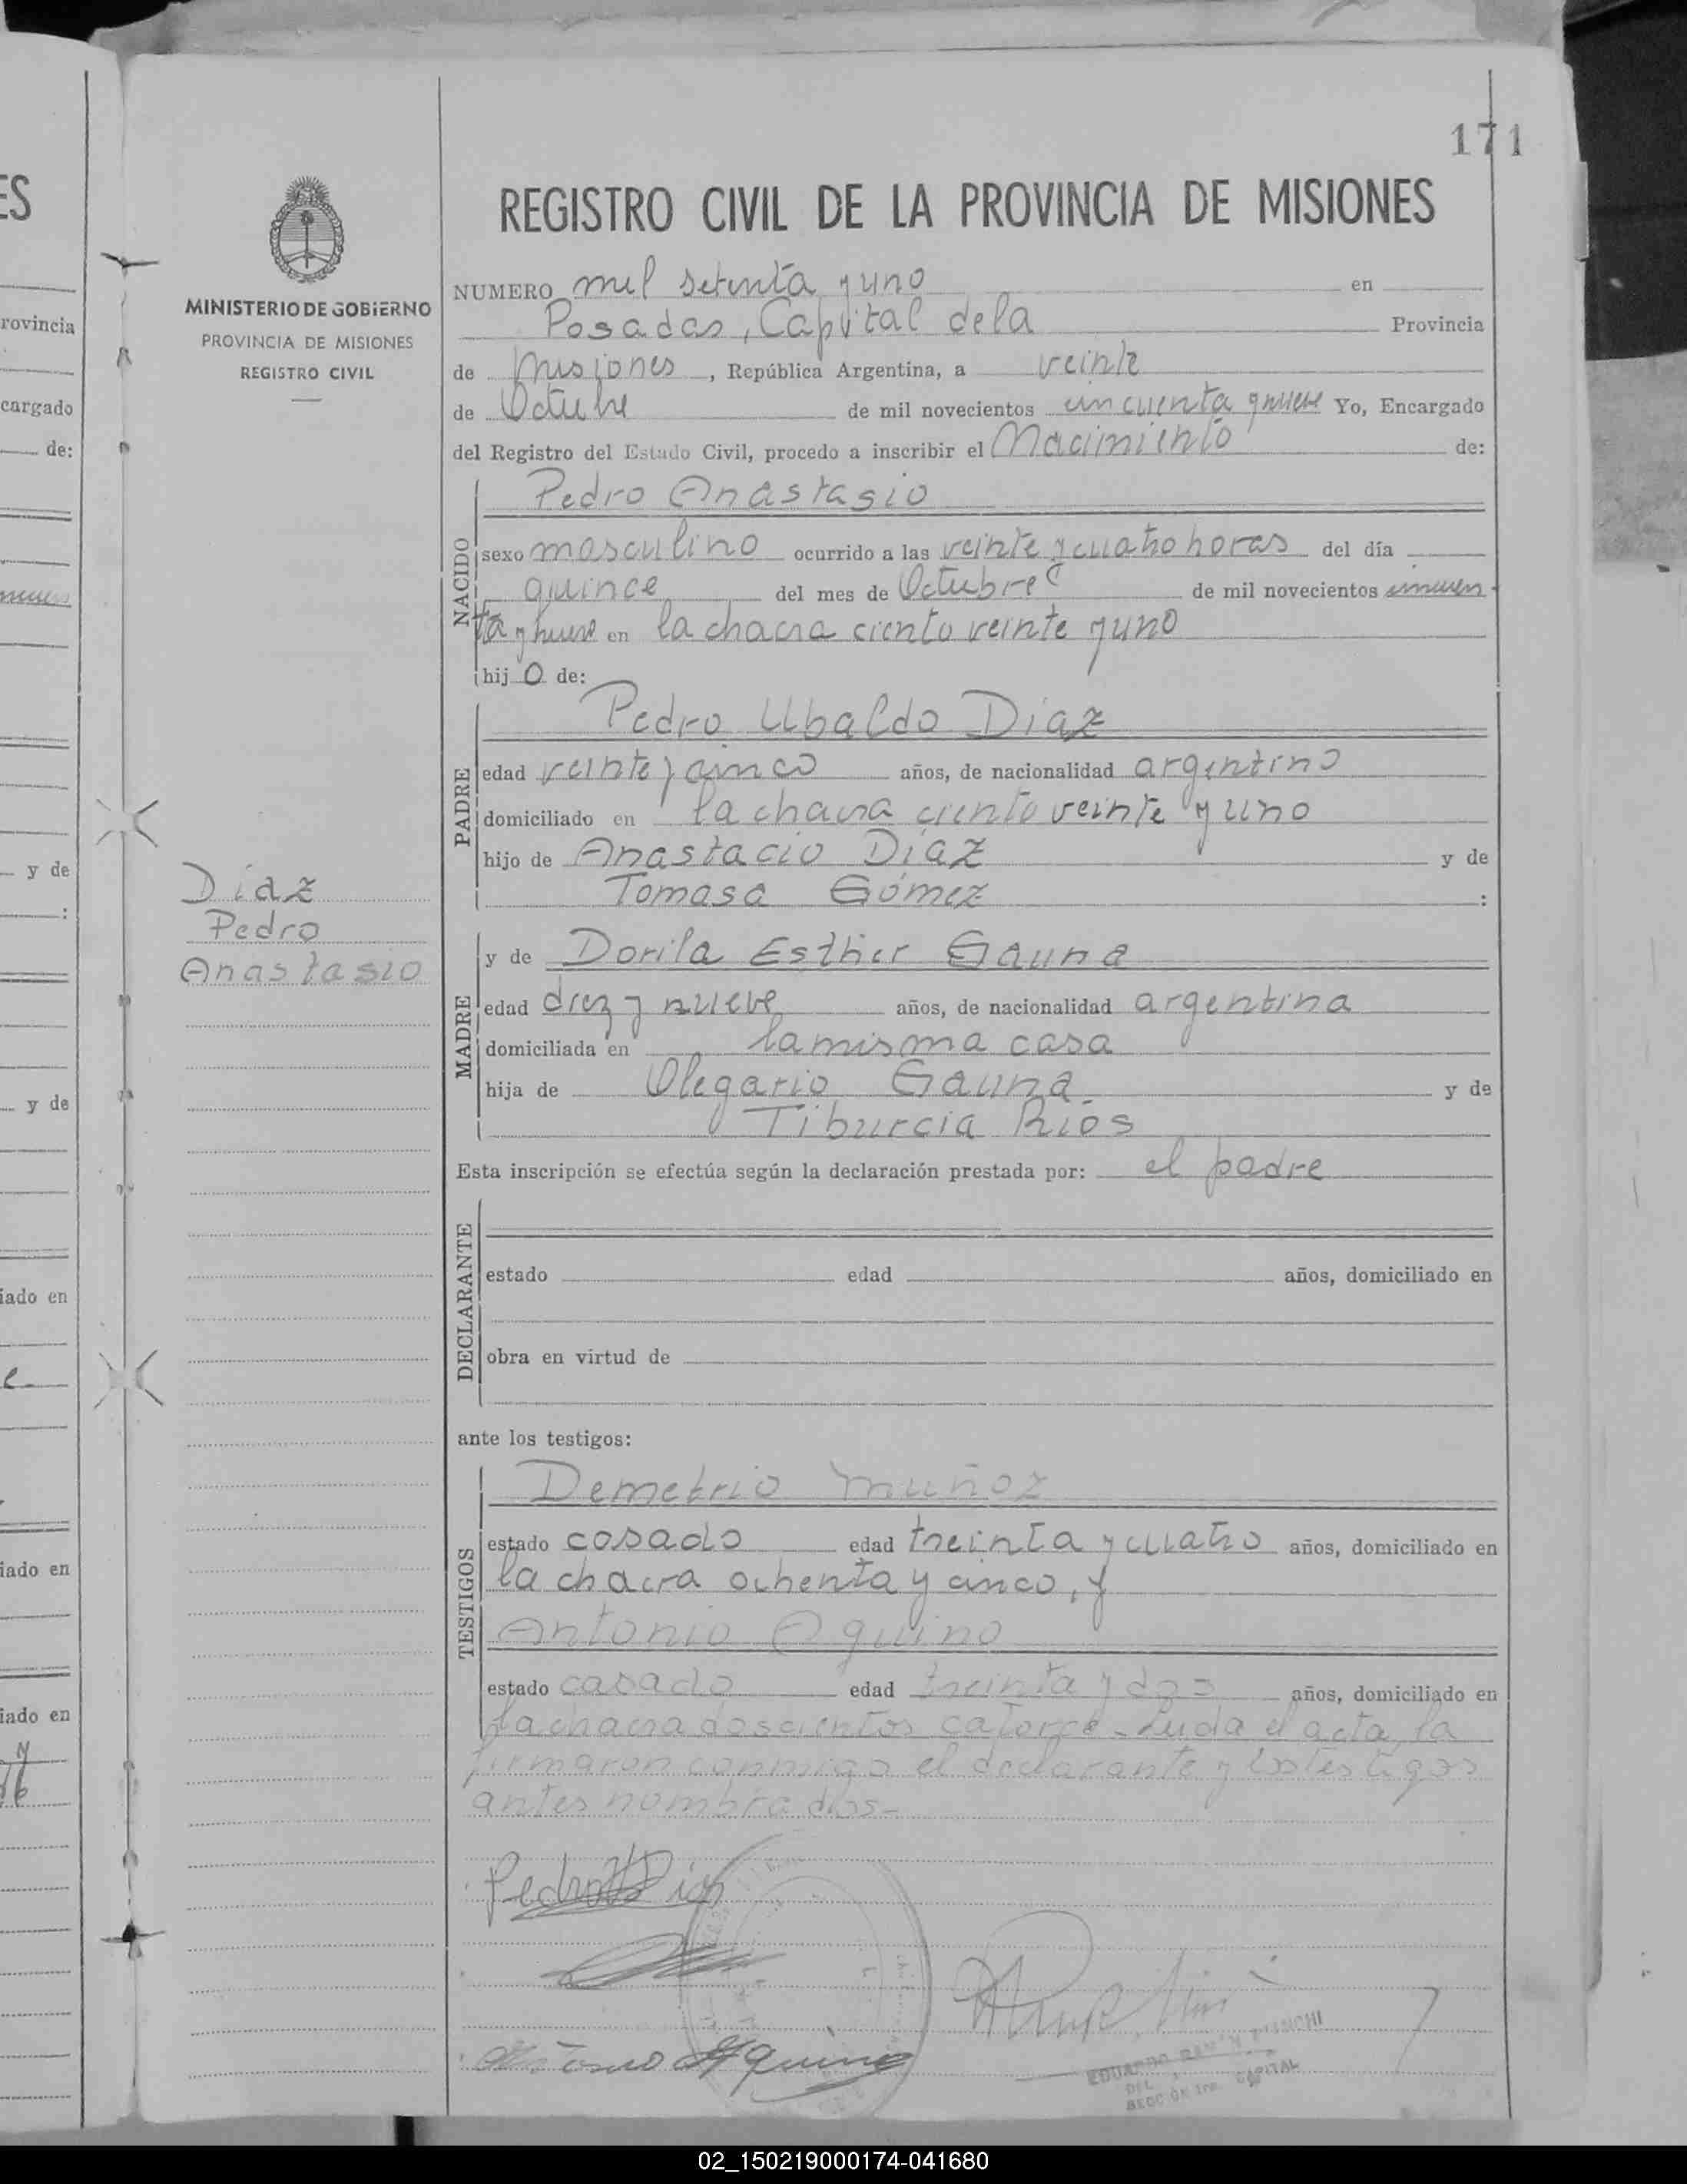 171
REGISTRO CIVIL DE LA PROVINCIA DE MISIONES
MINISTERIO DE GOBIERNO
PROVINCIA DE MISIONES
REGISTRO CIVIL
NUMERO mil setenta y uno en
Posadas, Capital de la Provincia
de Misiones, República Argentina, a veinte
de Octubre de mil novecientos cincuenta y nueve Yo, Encargado
del Registro del Estado Civil, procedo a inscribir el Nacimiento de:
Pedro Anastasio
NACIDO
sexo masculino ocurrido a las veinte y cuatro horas del día
quince del mes de Octubre de mil novecientos cincuen
ta y nueve en la chacra ciento veinte y uno
hijo de:
Pedro Ubaldo Diaz
PADRE
edad veinte y cinco años, de nacionalidad argentino
domiciliado en la chacra ciento veinte y uno
hijo de Anastacio Díaz y de
Tomasa Gómez :
Díaz
Pedro
Anastasio
MADRE
y de Dorila Esther Gauna
edad diez y nueve años, de nacionalidad argentina
domiciliada en la misma casa
hija de Olegario Gauna y de
Tiburcia Rios
Esta inscripción se efectúa según la declaración prestada por: el padre
DECLARANTE
estado edad años, domiciliado en
obra en virtud de
ante los testigos:
TESTIGOS
Demetrio Muñoz
estado casado edad treinta y cuatro años, domiciliado en
la chacra ochenta y cinco, y
Antonio Aquino
estado casado edad treinta y dos años, domiciliado en
la chacra doscientos catorce - Leida el acta, la
firmaron conmigo el declarante y los testigos
antes nombrados-
Pedro
Antonio Aquino
EDUARDO
DEL
SECCION 1ra. CAPITAL
ES
rovincia
cargado
de:
y de
:
y de
iado en
iado en
iado en
02_150219000174-041680